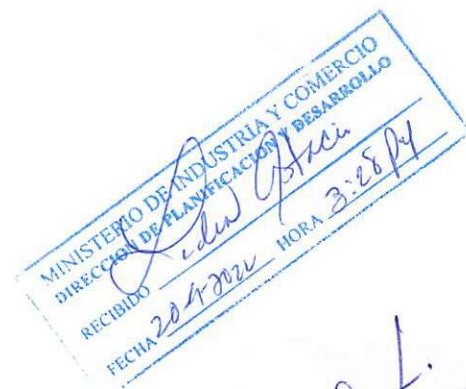 MINISTERIO DE INDUSTRIA Y COMERCIO
DIRECCION DE PLANIFICACION Y DESARROLLO
RECIBIDO
FECHA HORA 3:28 PM
L.